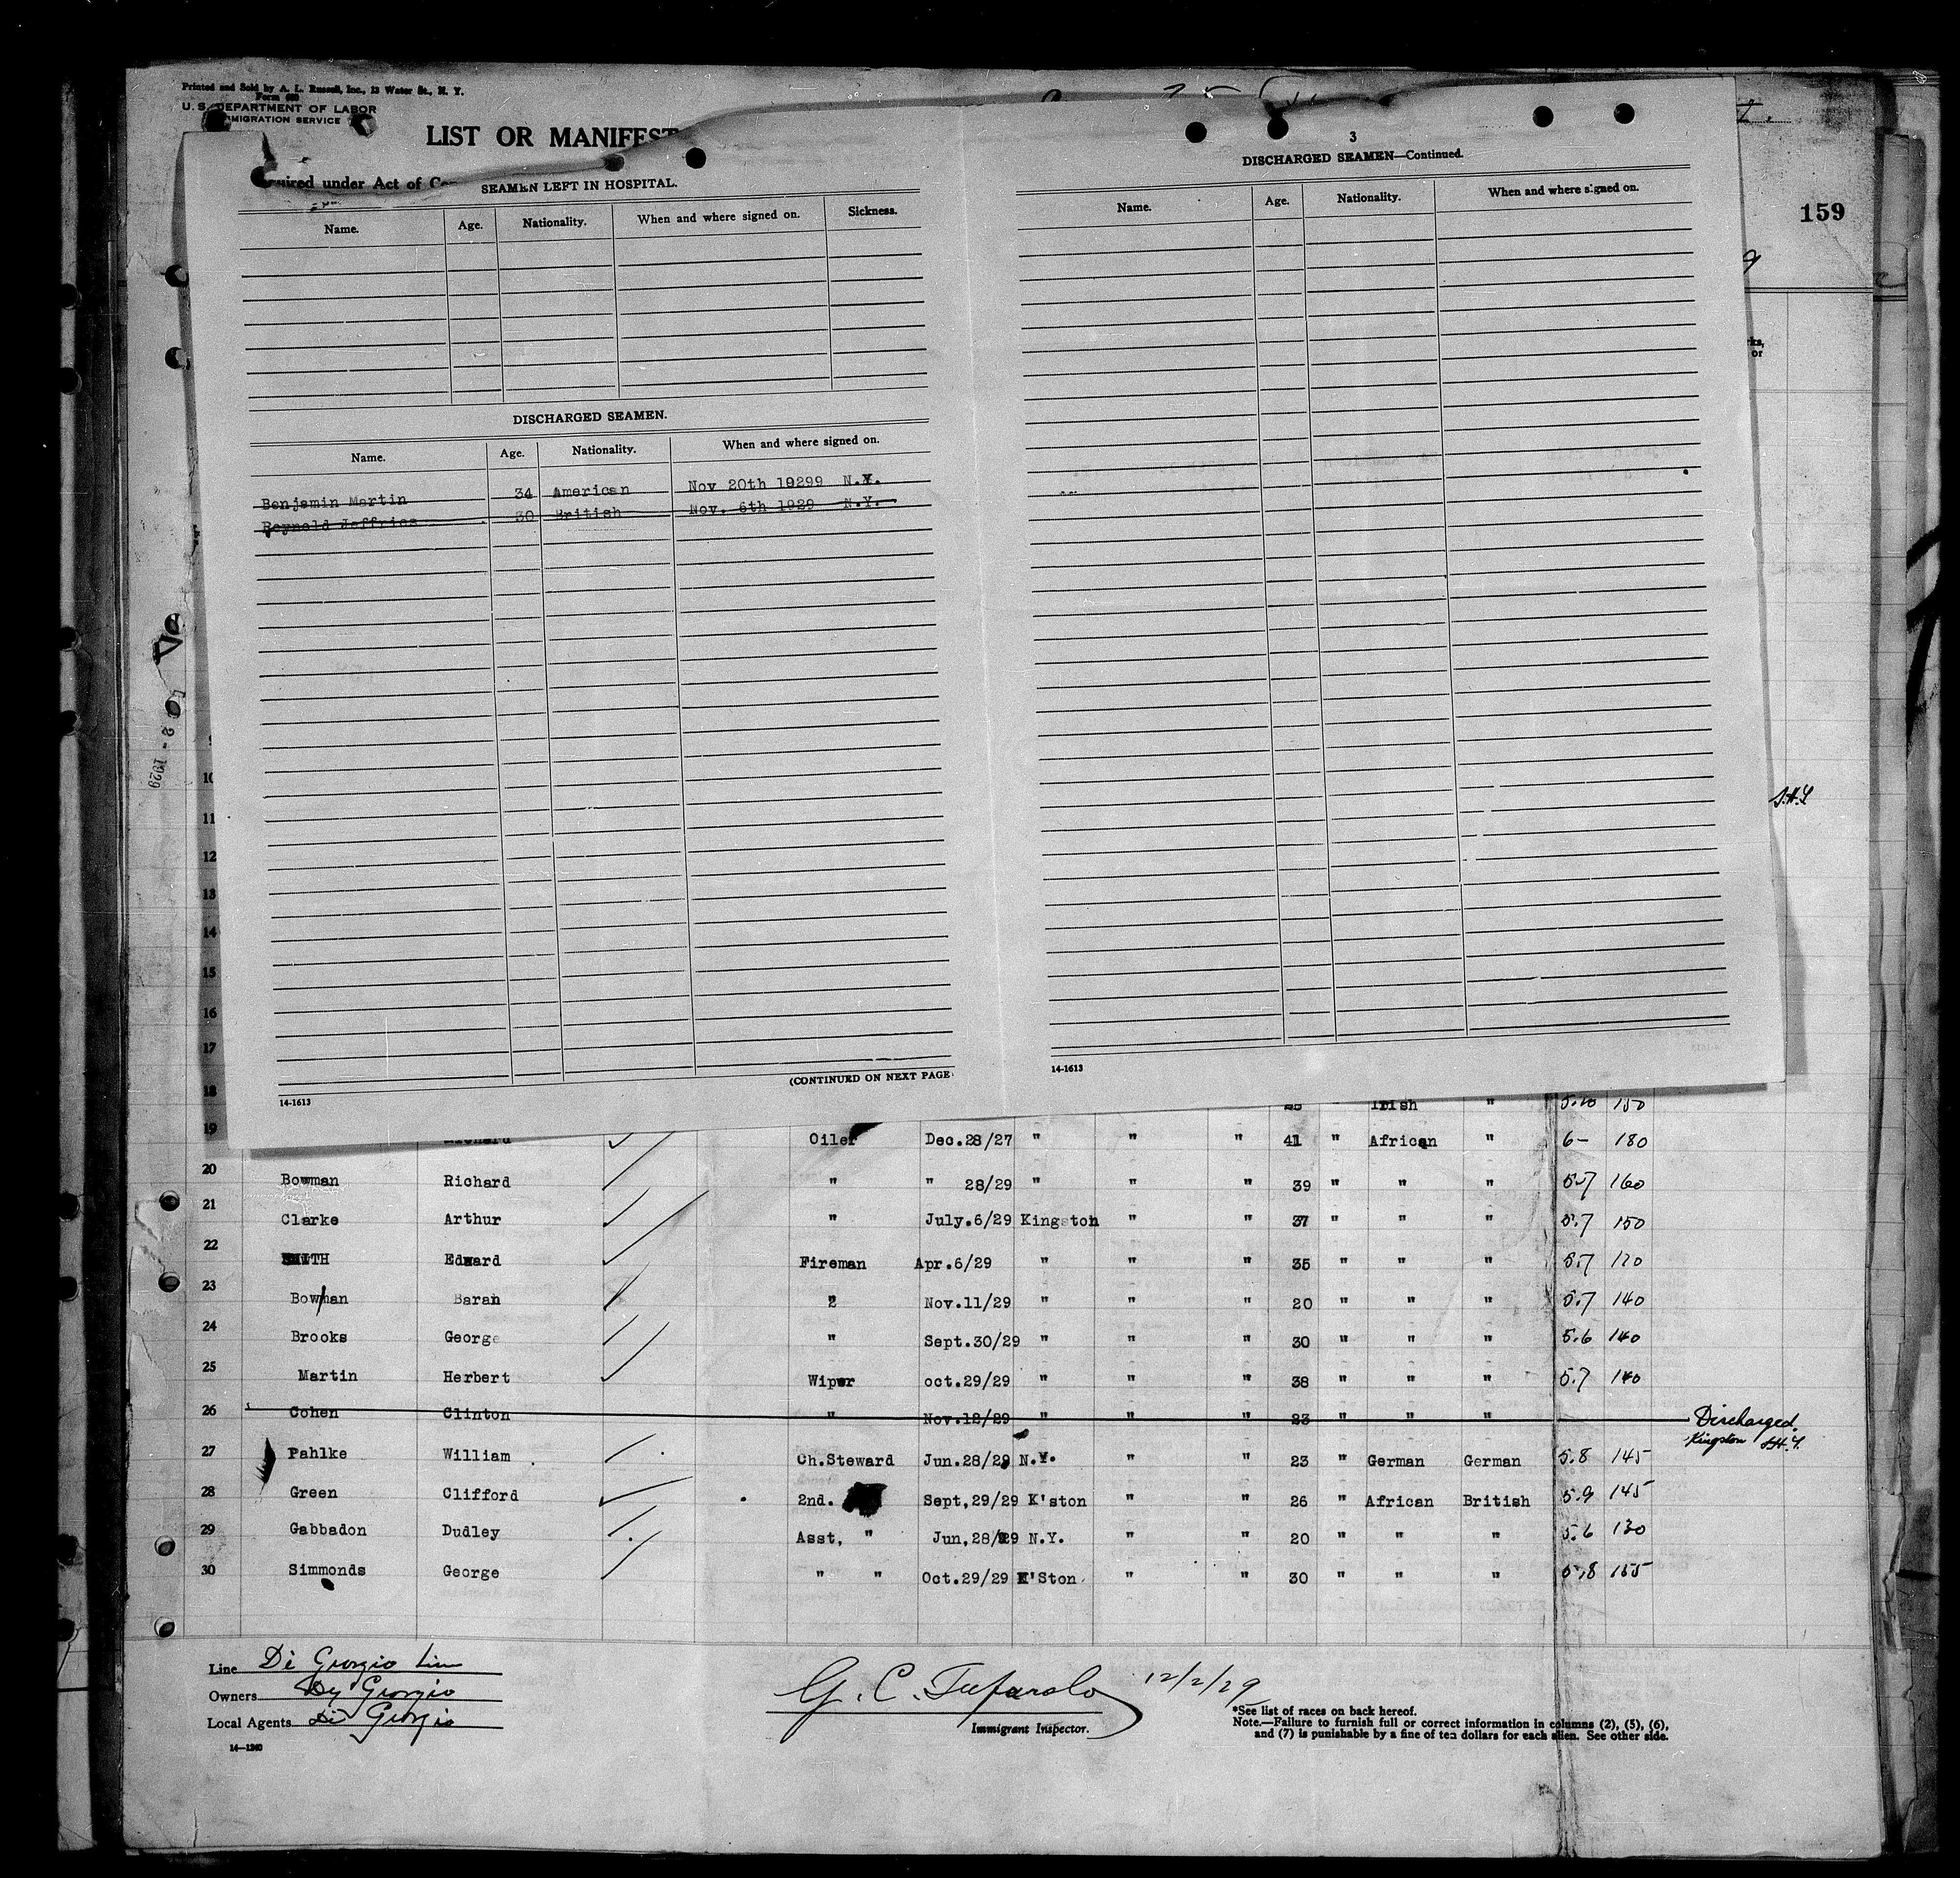 Printed and Sold by A. L. Russell, Inc., 13 Water St., N. Y.
Form 680
U. S. DEPARTMENT OF LABOR
IMMIGRATION SERVICE
LIST OR MANIFEST
quired under Act of Co
159
rks,
or
SEAMEN LEFT IN HOSPITAL.
Name. Age. Nationality. When and where signed on. Sickness.
DISCHARGED SEAMEN.
Name. Age. Nationality. When and where signed on.
Benjamin Martin 34 American Nov 20th 19299 N.Y.
Reynold Jeffries 30 British Nov. 6th 1929 N.Y.
(CONTINUED ON NEXT PAGE
14-1613
3
DISCHARGED SEAMEN—Continued.
Name. Age. Nationality. When and where signed on.
14-1613
2 - 1929
10
11
12
13
14
15
16
17
18 Irish " 5.10 150
19 Richard Oiler Dec.28/27 " " " 41 " African " 6- 180
20 Bowman Richard " " 28/29 " " " 39 " " " 5.7 160
21 Clarke Arthur " July.6/29 Kingston " " 37 " " " 5.7 150
22 SMITH Edward Fireman Apr.6/29 " " " 35 " " " 5.7 120
23 Bowman Baran " Nov.11/29 " " " 20 " " " 5.7 140
24 Brooks George " Sept.30/29 " " " 30 " " " 5.6 140
25 Martin Herbert Wiper oct.29/29 " " " 38 " " " 5.7 140
26 Cohen Clinton " Nov.12/29 " " " 23 " " " Discharged
Kingston
27 Pahlke William Ch.Steward Jun.28/29 N.Y. " " 23 " German German 5.8 145
28 Green Clifford 2nd. Sept,29/29 K'ston " " 26 " African British 5.9 145
29 Gabbadon Dudley Asst, " Jun,28/29 N.Y. " " 20 " " " 5.6 130
30 Simmonds George " " Oct.29/29 K'Ston " " 30 " " " 5.8 155
Line Di Giorgio Line
Owners Dy Giorgio
Local Agents Di Giorgio
14—1240
G. C. Tufarolo 12/2/29
Immigrant Inspector.
*See list of races on back hereof.
Note.—Failure to furnish full or correct information in columns (2), (5), (6),
and (7) is punishable by a fine of ten dollars for each alien. See other side.